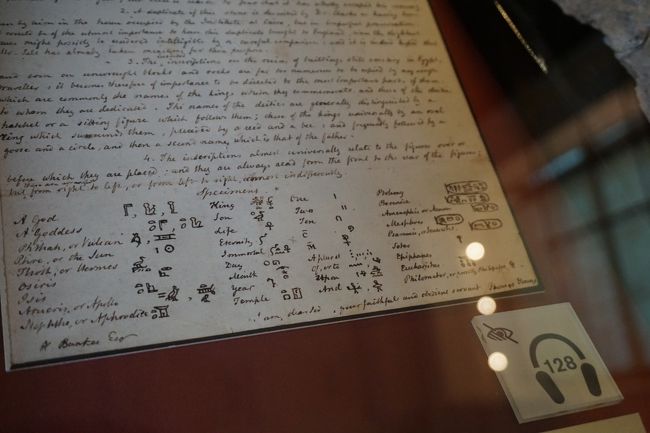 2. A duplicate of this stone
in the house occupied by the Institute at Cairo, but in
of the utmost importance to have this duplicate brought to England,
might possibly be rendered intelligible by a careful comparison; and it is indeed hoped that
Mr. Salt has already taken measures for this purpose
3. The inscriptions on the ruins of buildings still existing in Egypt,
and even on unwrought blocks and rocks are far too numerous to be copied by any single
traveller; it becomes therefore of importance to be directed to the most important parts of them
which are commonly the names of the kings whom they commemorate and those of the deities
to whom they are dedicated. The names of the deities are generally distinguished by a
hatchet or a sitting figure which follow them; those of the kings universally by an oval
ring which surrounds them, preceded by a reed and a bee; and frequently followed by a
goose and a circle, and then a second name, which is that of the father.
4. The inscriptions almost universally relate to the figures over or
before which they are placed: and they are always read from the front to the rear of the figures;
but from right to left, or from left to right, indifferently.
Specimens.
A God King One Ptolemy
A Goddess Son Two Berenice
Phthah, or Vulcan Life Ten
Phre, or the Sun Eternity Mesphres
Thoth, or Hermes Immortal A plural
Osiris Day Of, or to Epiphanes
Isis Month Upon Eucharistus
Arueris, or Apollo Year And Philopator
Nephthe, or Aphrodite Temple
I am, dear Sir, your faithful and obedient servant Thomas Young
W Bankes Esqr
128